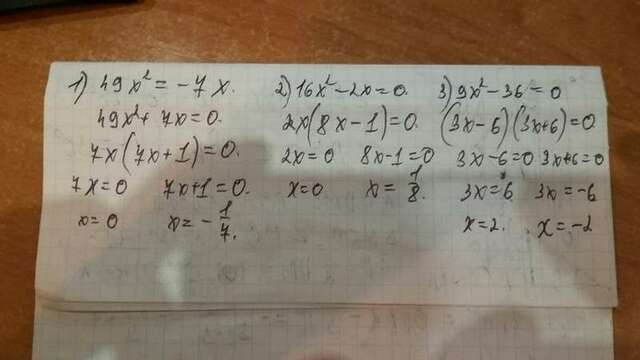 1) 49x² = -7x.
49x² + 7x = 0.
7x(7x+1) = 0.
7x = 0 7x+1 = 0.
x = 0 x = -1/7.
2) 16x² - 2x = 0.
2x(8x-1) = 0.
2x = 0 8x-1 = 0
x = 0 x = 1/8.
3) 9x² - 36 = 0
(3x-6)(3x+6) = 0
3x-6 = 0 3x+6 = 0
3x = 6 3x = -6
x = 2. x = -2